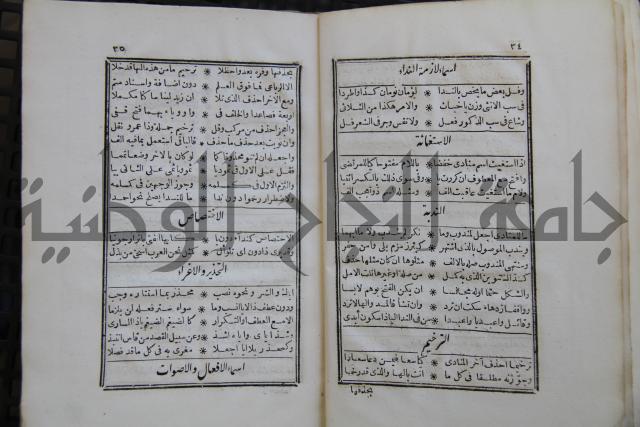 ٣٤
اسماء لازمت النداء
وفل بعض ما يخص بالندا * لؤمان نومان كذا واطردا
فى سب الانثى وزن يا خباث * والامر هكذا من الثلاثى
وشاع فى سب الذكور فعل * ولا تقس وجر فى الشعر فل
الاستغاثة
اذا استغيث اسم منادى خفضا * باللام مفتوحا كيا للمرتضى
وافتح مع المعطوف ان كررت يا * وفى سوى ذلك بالكسر ائتيا
ولام ما استغيث عاقبت الف * ومثله اسم ذو تعجب الف
الندبة
ما للمنادى اجعل لمندوب وما * نكر لم يندب ولا ما ابهما
ويندب الموصول بالذى اشتهر * كبئر زمزم يلى وا من حفر
ومنتهى المندوب صله بالالف * متلوها ان كان مثلها حذف
كذاك تنوين الذى به كمل * من صلة او غيرها نلت الامل
والشكل حتما اوله مجانسا * ان يكن الفتح بوهم لابسا
وواقفا زد هاء سكت ان ترد * وان تشا فالمد والها لا تزد
وقائل واعبديا واعبدا * من فى الندا اليا ذا سكون ابدى
الترخيم
ترخيما احذف آخر المنادى * كيا سعا فيمن دعا سعادا
وجوزنه مطلقا فى كل ما * انث بالها والذى قد رخما
بحذفها
٣٥
بحذفها وفره بعد واحظلا * ترخيم ما من هذه الها قد خلا
الا الرباعى فما فوق العلم * دون اضافة واسناد متم
ومع الآخر احذف الذى تلا * ان زيد لينا ساكنا مكملا
اربعة فصاعدا والخلف فى * واو وياء بهما فتح قفى
والعجز احذف من مركب وقل * ترخيم جملة وذا عمرو نقل
وان نويت بعد حذف ما حذف * فالباقى استعمل بما فيه الف
واجعله ان لم تنو محذوفا كما * لو كان بالآخر وضعا تمما
فقل على الاول فى ثمود يا * ثمو ويا ثمى على الثانى بيا
والتزم الاول فى كمسلمه * وجوز الوجهين فى كمسلمه
ولاضطرار رخموا دون ندا * ما للندا يصلح نحو احمدا
الاختصاص
الاختصاص كنداء دون يا * كايها الفتى باثر ارجونيا
وقد يرى ذا دون اى تلو ال * كمثل نحن العرب اسخى من بذل
التحذير والاغراء
اياك والشر ونحوه نصب * محذر بما استتاره وجب
ودون عطف ذا لايا انسب وما * سواه ستر فعله لن يلزما
الا مع العطف او التكرار * كالضيغم الضيغم يا ذا السارى
وشذ اياى واياه اشذ * وعن سبيل القصد من قاس انتبذ
وكمحذر بلا ايا اجعلا * مغرى به فى كل ما قد فصلا
اسماء الافعال والاصوات
جامعة النجاح الوطنية